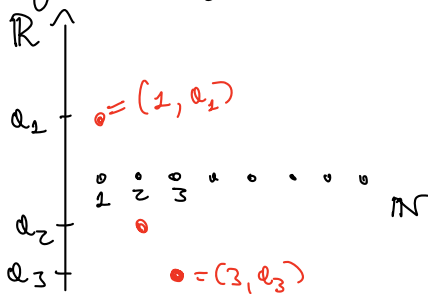 ℝ
a₁ = (1, a₁)
1 2 3
ℕ
a₂
a₃ = (3, a₃)